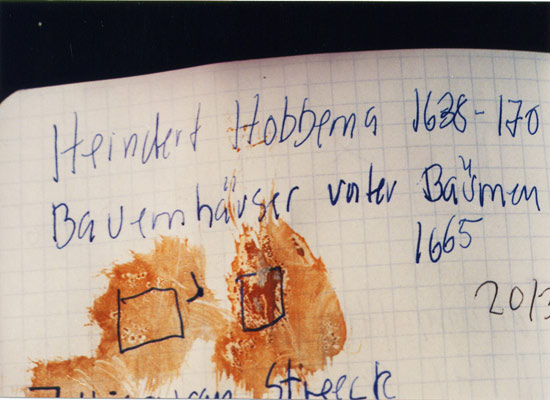 Heindert Hobbema 1638-170
Bauernhäuser unter Bäumen
1665
20/3
Streeck